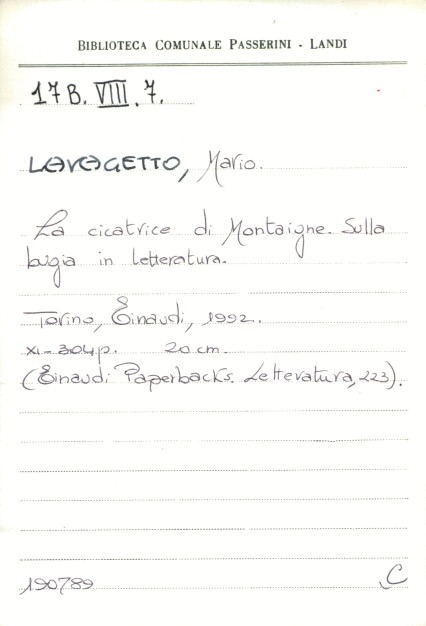 BIBLIOTECA COMUNALE PASSERINI - LANDI
17B. VIII. 7.
LAVAGETTO, Mario.
La cicatrice di Montaigne. Sulla
bugia in letteratura.
Torino, Einaudi, 1992.
XI-304p. 20 cm.
(Einaudi Paperbacks. Letteratura, 223).
190789 C